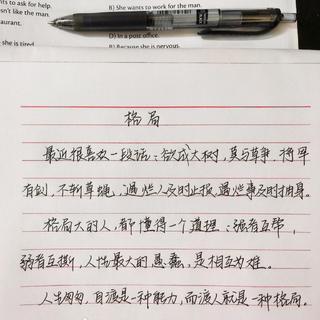 nts to ask for help.
B) She wants to work for the man.
sn't like the man.
aurant.
D) In a post office.
e is tired.
B) Because she is nervous.
格局
最近很喜欢一段话:欲成大树,莫与草争,将军
有剑,不斩草蝇,遇烂人及时止损,遇烂事及时抽身。
格局大的人,都懂得一个道理:强者互帮,
弱者互撕,人性最大的愚蠢,是相互为难。
人生匆匆,自渡是一种能力,而渡人就是一种格局。